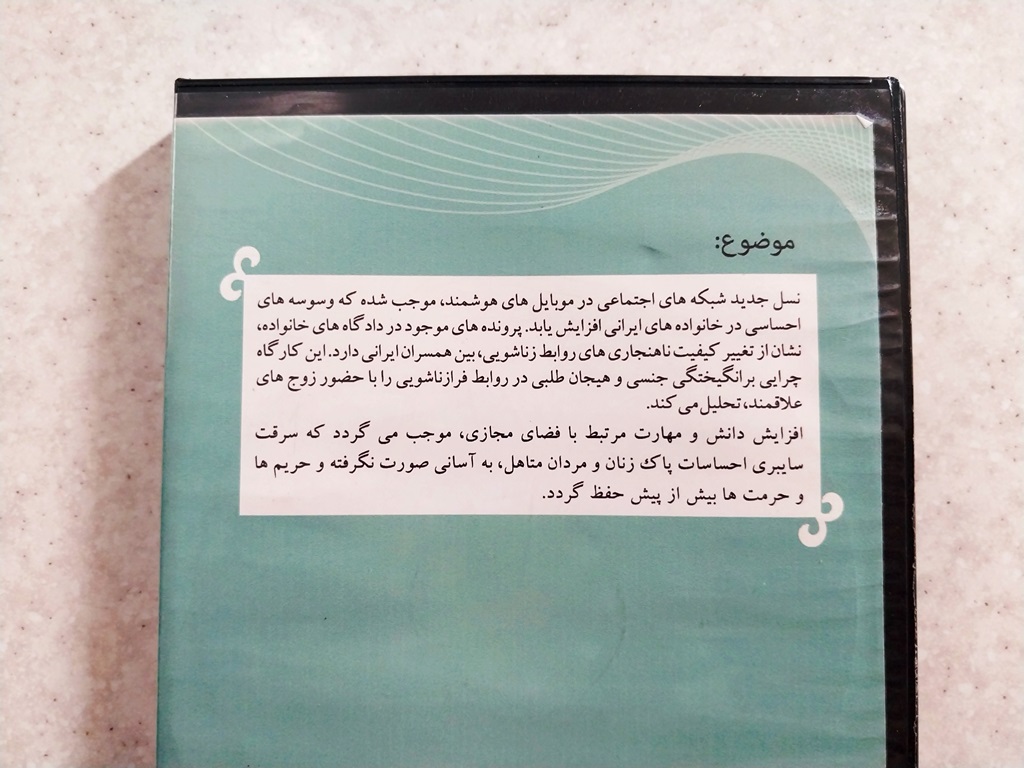 موضوع:
نسل جدید شبکه های اجتماعی در موبایل های هوشمند، موجب شده که وسوسه های
احساسی در خانواده های ایرانی افزایش یابد. پرونده های موجود در دادگاه های خانواده،
نشان از تغییر کیفیت ناهنجاری های روابط زناشویی، بین همسران ایرانی دارد. این کارگاه
چرایی برانگیختگی جنسی و هیجان طلبی در روابط فرازناشویی را با حضور زوج های
علاقمند، تحلیل می کند.
افزایش دانش و مهارت مرتبط با فضای مجازی، موجب می گردد که سرقت
سایبری احساسات پاک زنان و مردان متاهل، به آسانی صورت نگرفته و حریم ها
و حرمت ها بیش از پیش حفظ گردد.